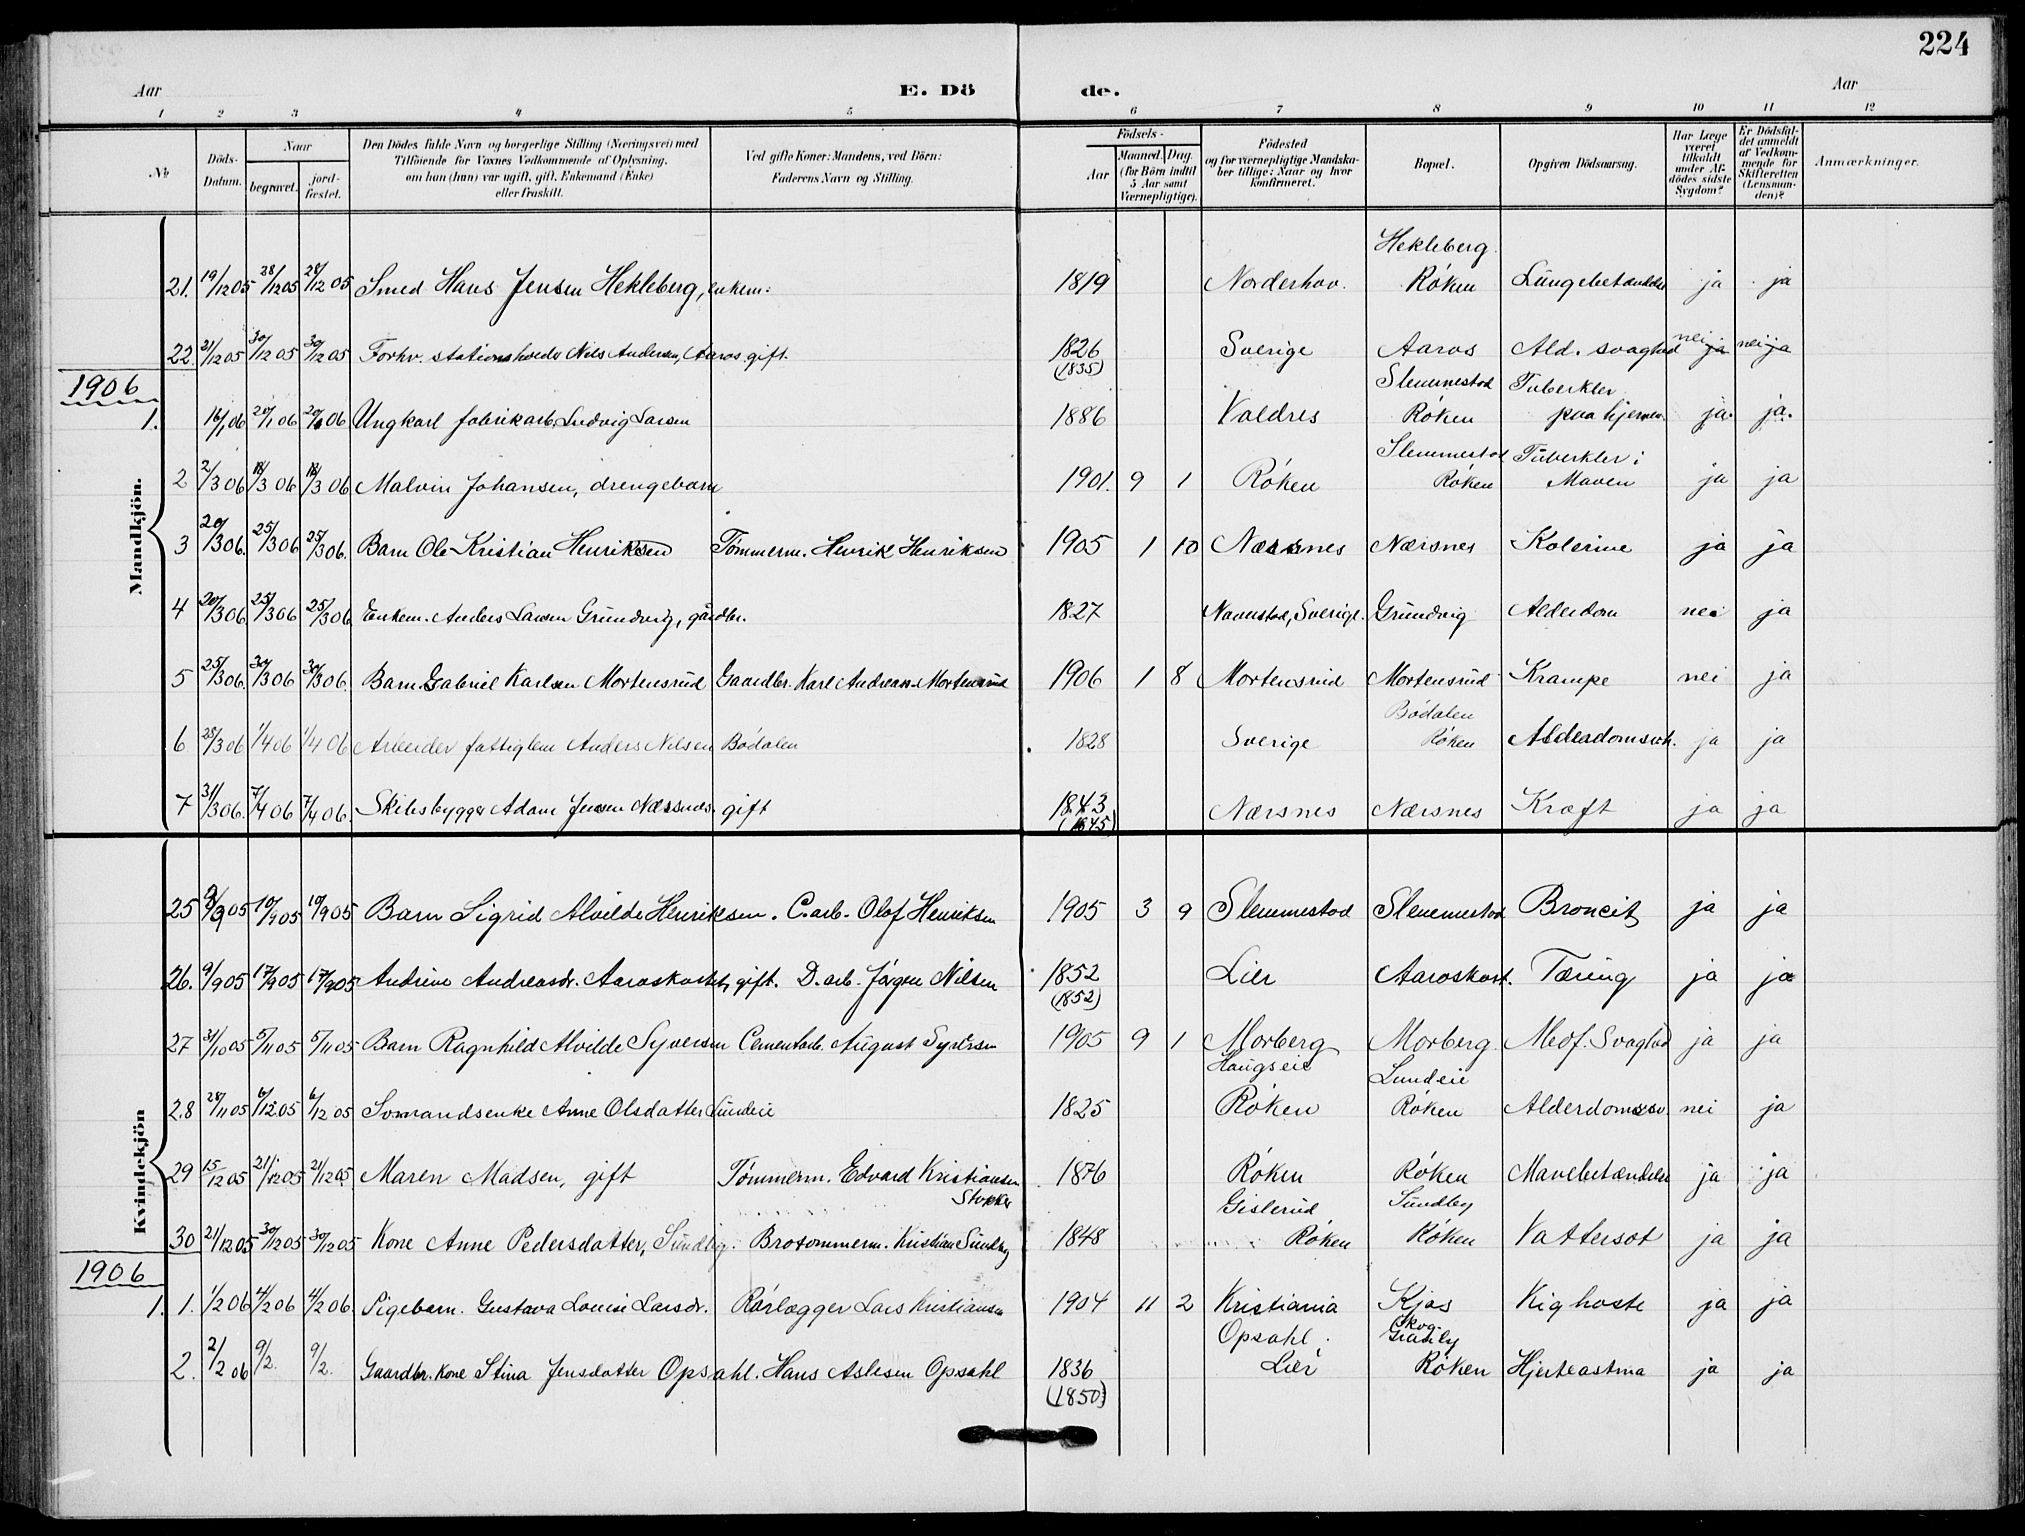 224
Aar E. Dö de. Aar
1 2 3 4 5 6 7 8 9 10 11 12
No
Döds-Datum.
Naar
begravet.
jord-fæstet.
Den Dödes fulde Navn og borgerlige Stilling (Næringsvei) med
Tilföiende for Voxnes Vedkommende af Oplysning.
om han (hun) var ugift, gift, Enkemand (Enke)
eller fraskilt.
Ved gifte Koner: Mandens, ved Börn:
Faderens Navn og Stilling.
Födsels-
Aar
Maaned. Dag.
(for Börn indtil
5 Aar samt
Værnepligtige).
Födested
og for værnepligtige Mandska-
ber tillige: Naar og hvor
konfirmeret.
Bopæl.
Opgiven Dödsaarsag.
Har Læge
været
tilkaldt
under Af-
dödes sidste
Sygdom?
Er Dödsfal-
det anmeldt
af Vedkom-
mende for
Skifteretten
(Lensman-
den)?
Anmærkninger.
Mandkjön.
Hekleberg
21. 19/12 05 28/12 05 28/12 05 Smed Hans Jensen Hekleberg, enkem: 1819 Norderhov. Röken Lungebetændelse ja ja
22. 21/12 05 30/12 05 30/12 05 Forhv. stationsholder Nils Andersen, Aaros. gift. 1826 Sverige Aaros Ald. svaghed nei ja nei ja
(1835)
1906
Slemmestad Tuberkler
1. 16/1 06 20/1 06 20/1 06 Ungkarl fabrikarb. Ludvig Larsen 1886 Valdres Röken paa hjernen. ja. ja.
Slemmestad Tuberkler i
2 2/3 06 18/3 06 18/3 06 Malvin Johansen, drengebarn 1901. 9 1 Röken Röken Maven ja ja
3 20/3 06. 25/3 06 25/3 06. Barn Ole Kristian Henriksen Tömmerm. Henrik Henriksen 1905 1 10 Nærsnes Nærsnes Kolerine ja ja
4 20/3 06 25/3 06 25/3 06 Enkem. Anders Larsen Grundvig, gårdbr. 1827 Navnstad, Sverige. Grundvig Alderdom nei ja
5 25/3 06. 30/3 06 30/3 06. Barn Gabriel Karlsen Mortensrud Gaardbr. Karl Andreas. Mortensrud 1906 1 8 Mortensrud Mortensrud Krampe nei ja
Bödalen
6 25/3 06 1/4 06 1/4 06 Arbeider fattiglem Anders Nilsen Bödalen 1828 Sverige Röken Alderdomsvh. ja ja
7 31/3 06. 7/4 06 7/4 06. Skibsbygger Adam Jensen Næssnes. gift 1843 Nærsnes Nærsnes Kræft ja ja
(1845)
Kvindekjön
25 9/9 05 10/9 05 10/9 05 Barn Sigrid Alvilde Henriksen. C.arb. Olof Henriksen 1905 3 9 Slemmestad Slemmestad Broncit ja ja
26. 9/9 05 17/9 05 17/9 05 Andrine Andreasdr. Aaroskortet, gift. D. arb. Jörgen Nilsen 1852 Lier Aaroskort. Tæring ja ja
(1852)
27 31/10 05 5/11 05 5/11 05 Barn Ragnhild Alvilde Syversen Cementarb. August Syversen 1905 9 1 Morberg Morberg Medf. Svaghed ja ja
Haugseie Lundeie
28 28/11 05 6/12 05 6/12 05 Sömandsenke Anne Olsdatter Lundeie 1825 Röken Röken Alderdomssv. nei ja
29 15/12 05 21/12 05 21/12 05 Maren Madsen, gift Tömmerm. Edvard Kristiansen 1876 Röken Röken Mavebetændelse ja ja
Stokker
Gislerud Sundby
30 21/12 05 30/12 05 30/12 05 Kone Anne Pedersdatter, Sundby. Brotömmerm. Kristian Sundby 1848 Röken Röken Vattersot ja ja
1906
1. 1. 1/2 06 4/2 06 4/2 06. Pigebarn. Gustava Louise Larsdr. Rörlægger Lars Kristiansen 1904 11 2 Kristiania Kjos Kighoste ja ja
Opsahl. Skog-
Granly
2. 2/2 06 9/2. 9/2. Gaardbr. kone Stina Jensdatter Opsahl. Hans Aslesen Opsahl 1836 Lier Röken Hjerteastma ja ja
(1850)